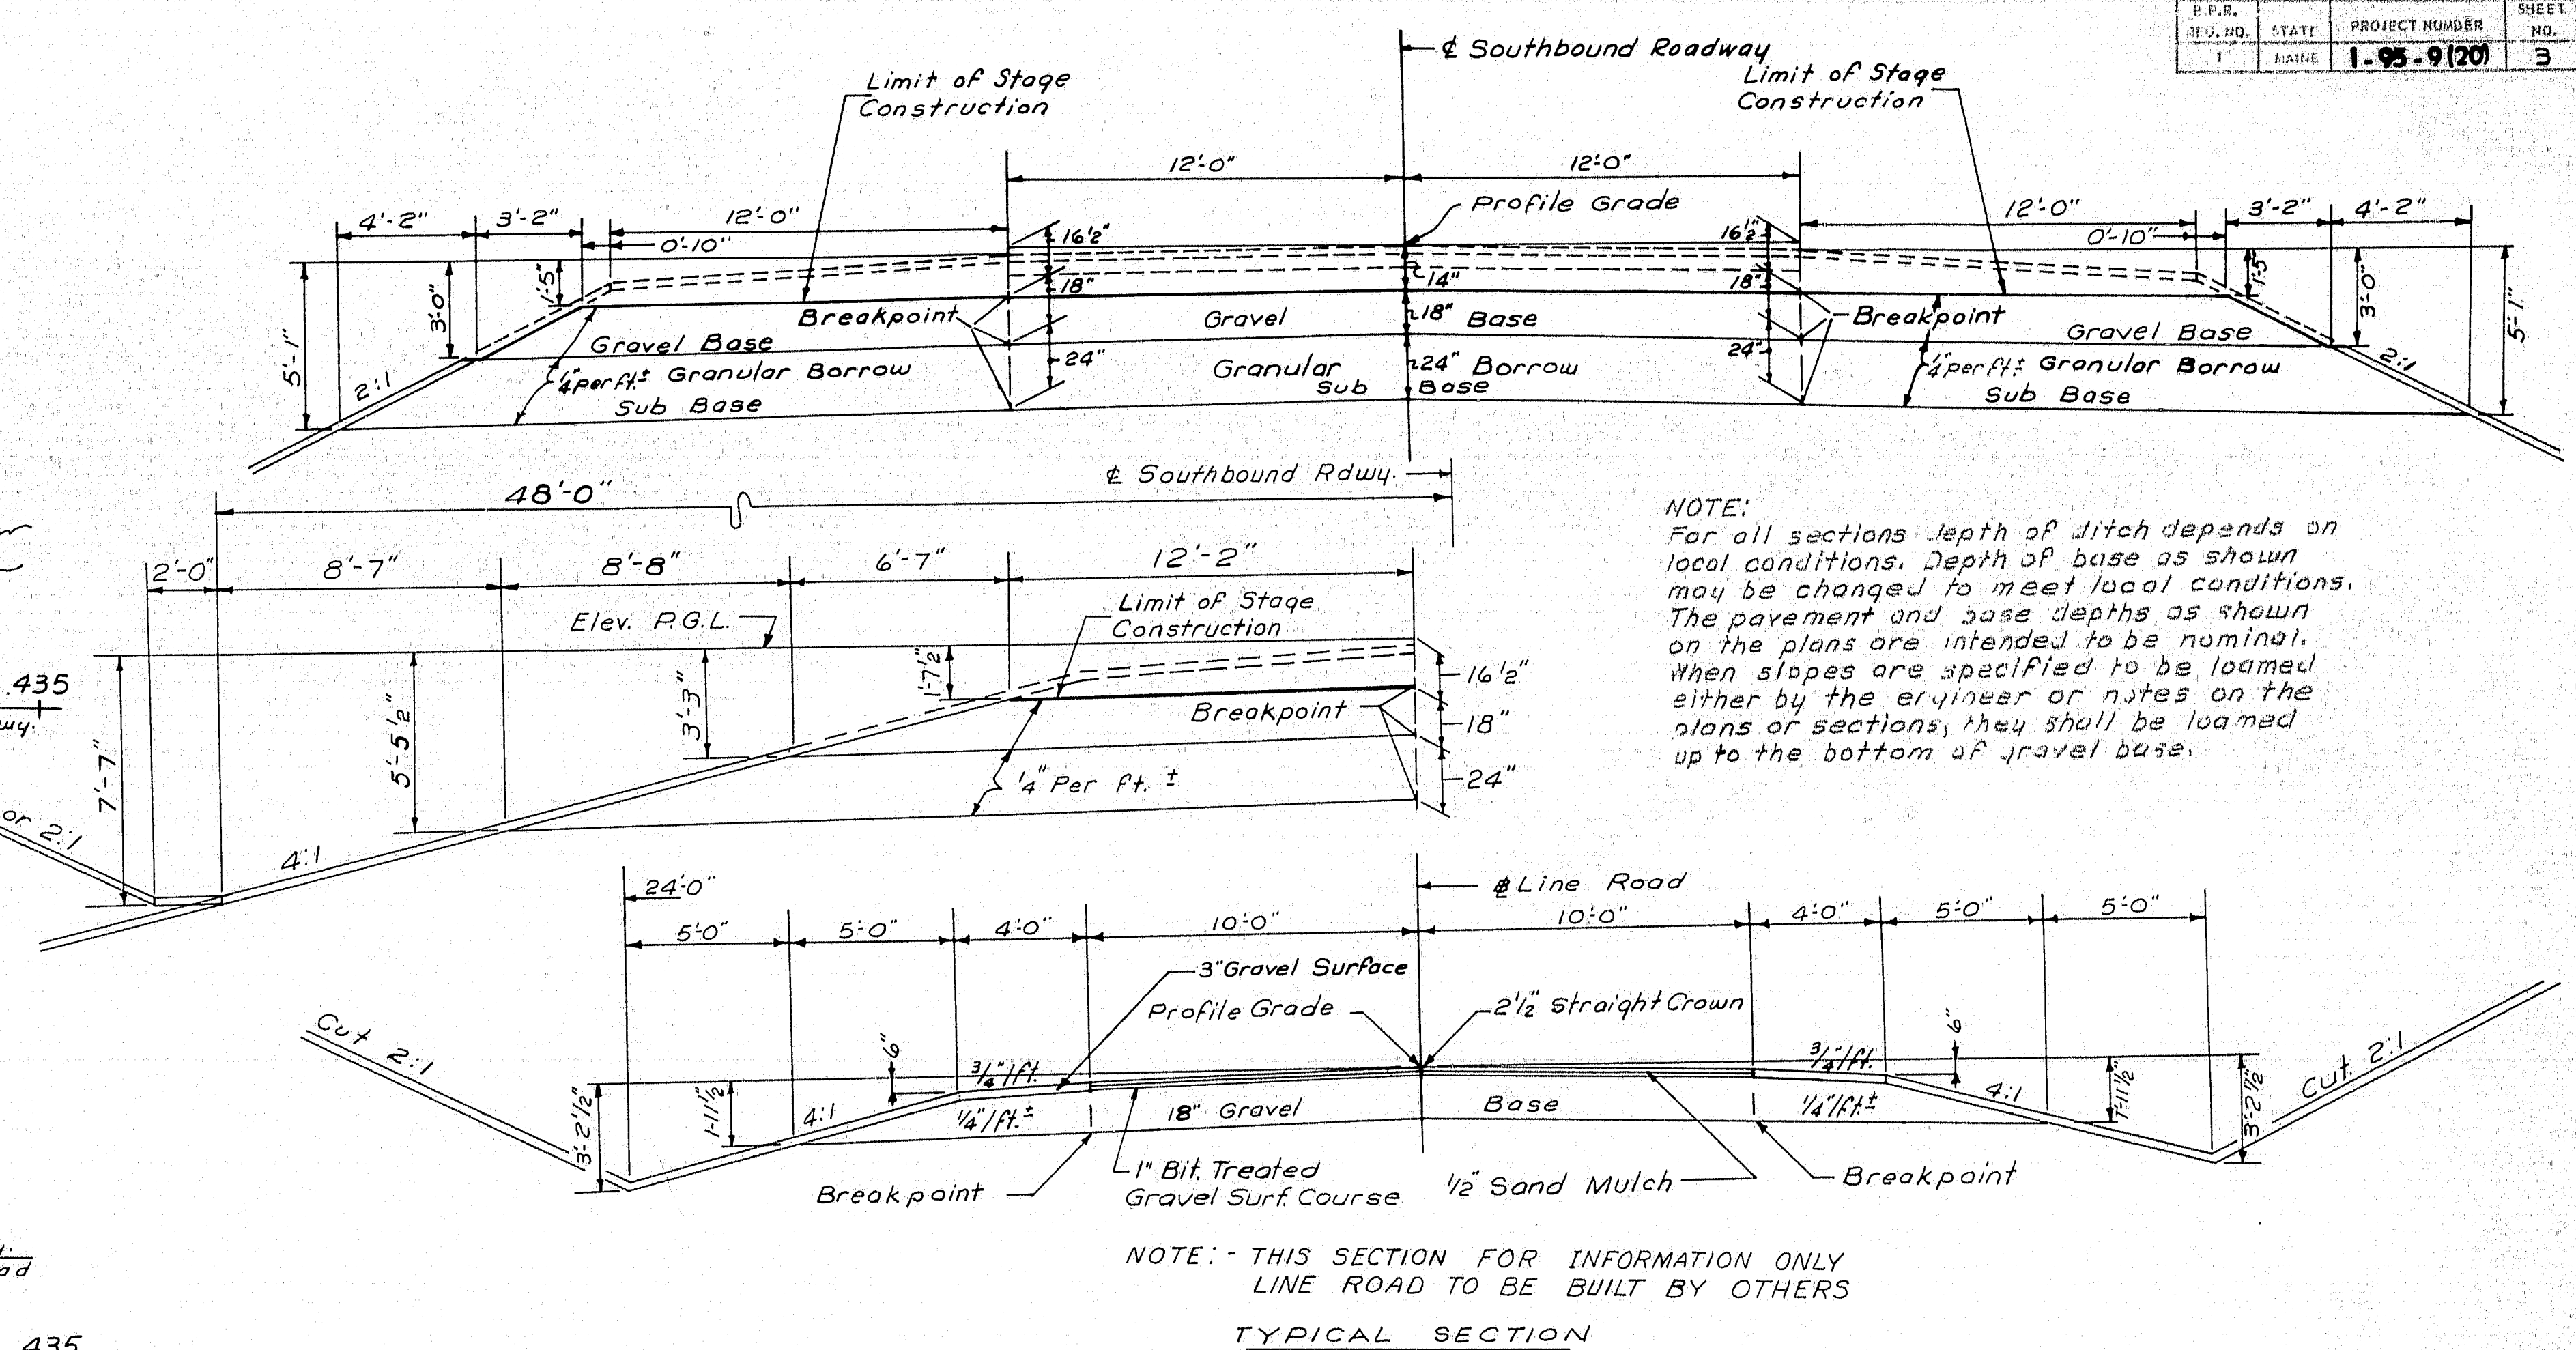 B.P.R. REG. NO. STATE PROJECT NUMBER SHEET NO.
1 MAINE I-95-9(20) 3
℄ Southbound Roadway
Limit of Stage
Construction
Limit of Stage
Construction
12'-0" 12'-0"
Profile Grade
4'-2" 3'-2" 12'-0"
0'-10"
12'-0" 3'-2" 4'-2"
0'-10"
16½" 16½"
18" 14" 18"
5'-1" 3'-0" 1'-5" 1'-5" 3'-0" 5'-1"
Breakpoint Gravel 18" Base Breakpoint
Gravel Base Gravel Base
24" Granular 24" Borrow 24"
Sub Base
¼" per ft.± Granular Borrow
Sub Base
¼" per ft.± Granular Borrow
Sub Base
2:1 2:1
℄ Southbound Rdwy.
48'-0"
2'-0" 8'-7" 8'-8" 6'-7" 12'-2"
Elev. P.G.L.
Limit of Stage
Construction
7'-7" 5'-5½" 3'-3" 1'-7½"
16½"
Breakpoint
18"
¼" Per ft. ±
24"
4:1
or 2:1
.435
wy.
NOTE:
For all sections depth of ditch depends on
local conditions. Depth of base as shown
may be changed to meet local conditions.
The pavement and base depths as shown
on the plans are intended to be nominal.
When slopes are specified to be loamed
either by the engineer or notes on the
plans or sections, they shall be loamed
up to the bottom of gravel base.
24'-0"
℄ Line Road
5'-0" 5'-0" 4'-0" 10'-0" 10'-0" 4'-0" 5'-0" 5'-0"
3" Gravel Surface
Profile Grade
2½" Straight Crown
Cut 2:1
Cut. 2:1
6" ¾"/ft. ¾"/ft. 6"
3'-2½" 1'-11½" 4:1 ¼"/ft.± 18" Gravel Base ¼"/ft± 4:1 1'-11½" 3'-2½"
Breakpoint
1" Bit. Treated
Gravel Surf. Course
½" Sand Mulch
Breakpoint
NOTE:- THIS SECTION FOR INFORMATION ONLY
LINE ROAD TO BE BUILT BY OTHERS
TYPICAL SECTION
ad
435